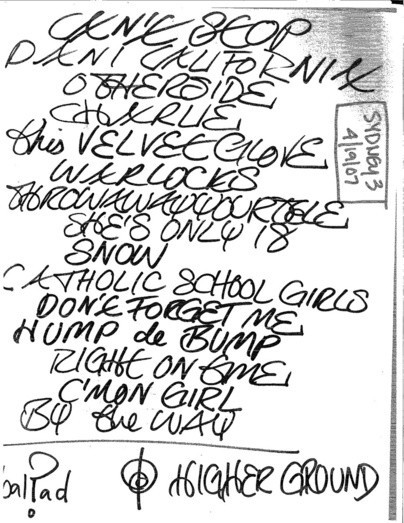 CAN'T STOP
DANI CALIFORNIA
OTHERSIDE
CHARLIE
this VELVET GLOVE
WARLOCKS
THROWAWAYYOURTELE
SHE'S ONLY 18
SNOW
CATHOLIC SCHOOL GIRLS
DON'T FORGET ME
HUMP de BUMP
RIGHT ON TIME
C'MON GIRL
BY the WAY
ballad ?
HIGHER GROUND
SYDNEY 3
4/19/07